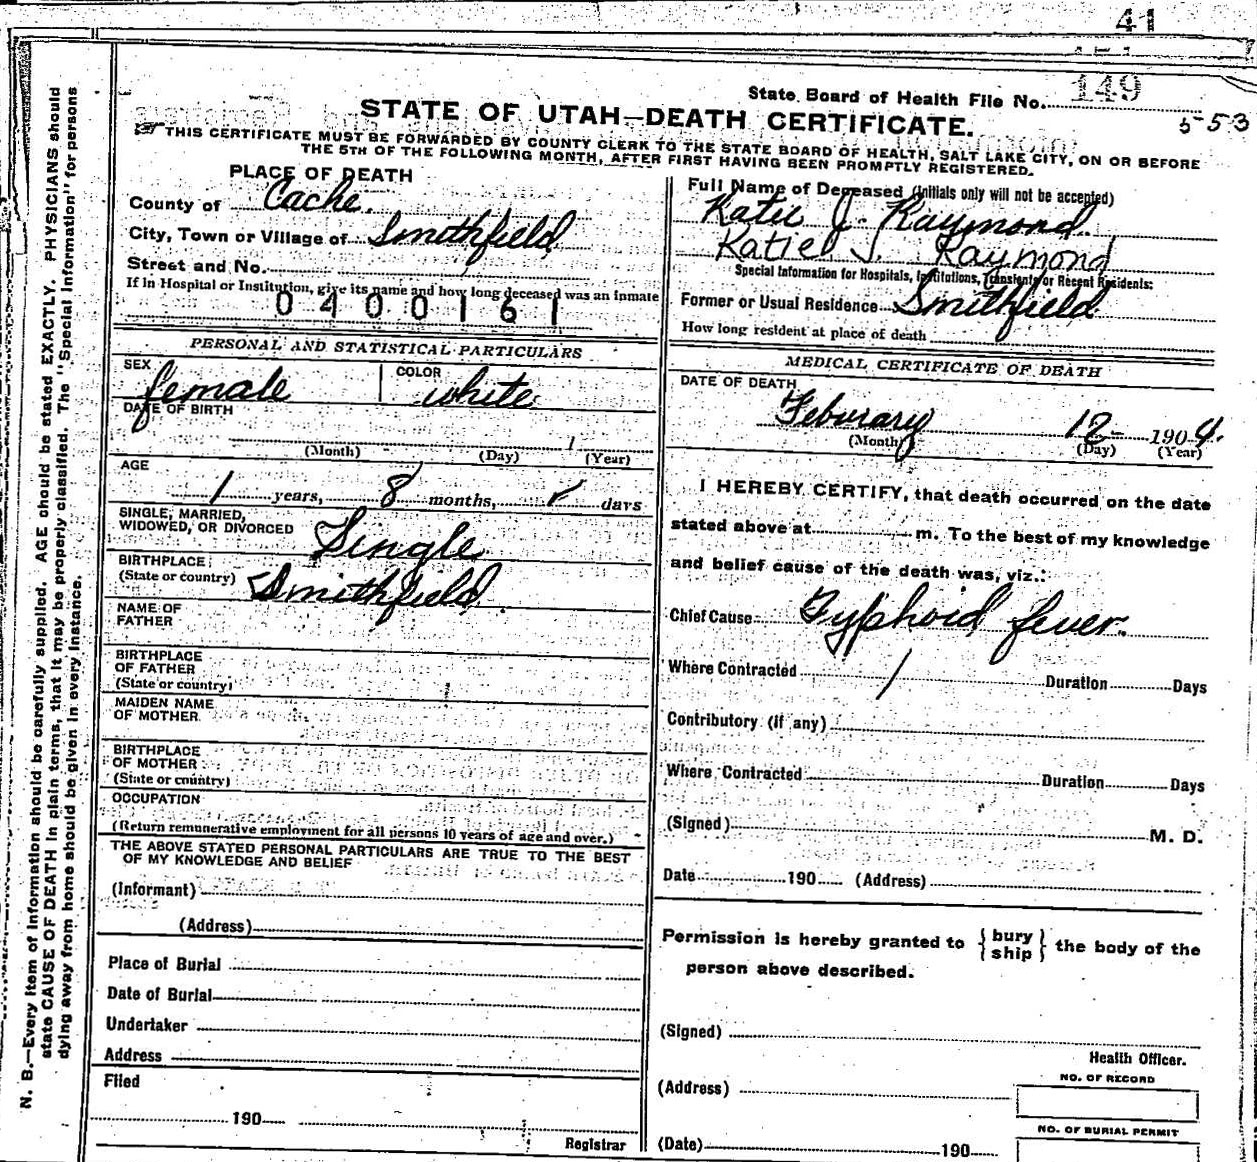 41
State Board of Health File No. 149
553
STATE OF UTAH—DEATH CERTIFICATE.
THIS CERTIFICATE MUST BE FORWARDED BY COUNTY CLERK TO THE STATE BOARD OF HEALTH, SALT LAKE CITY, ON OR BEFORE
THE 5TH OF THE FOLLOWING MONTH, AFTER FIRST HAVING BEEN PROMPTLY REGISTERED.
N. B.—Every item of information should be carefully supplied. AGE should be stated EXACTLY. PHYSICIANS should
state CAUSE OF DEATH in plain terms, that it may be properly classified. The "Special Information" for persons
dying away from home should be given in every instance.
PLACE OF DEATH
County of Cache.
City, Town or Village of Smithfield
Street and No.
If in Hospital or Institution, give its name and how long deceased was an inmate
0400161
PERSONAL AND STATISTICAL PARTICULARS
SEX female COLOR white
DATE OF BIRTH
(Month) (Day) (Year)
AGE
1 years, 8 months, days
SINGLE, MARRIED,
WIDOWED, OR DIVORCED Single
BIRTHPLACE
(State or country) Smithfield
NAME OF
FATHER
BIRTHPLACE
OF FATHER
(State or country)
MAIDEN NAME
OF MOTHER
BIRTHPLACE
OF MOTHER
(State or country)
OCCUPATION
(Return remunerative employment for all persons 10 years of age and over.)
THE ABOVE STATED PERSONAL PARTICULARS ARE TRUE TO THE BEST
OF MY KNOWLEDGE AND BELIEF
(Informant)
(Address)
Place of Burial
Date of Burial
Undertaker
Address
Filed
190
Registrar
Full Name of Deceased (Initials only will not be accepted)
Katie J. Raymond
Katie J. Raymond
Special Information for Hospitals, Institutions, Transients or Recent Residents:
Former or Usual Residence Smithfield
How long resident at place of death
MEDICAL CERTIFICATE OF DEATH
DATE OF DEATH
Feburary 12 1904.
(Month) (Day) (Year)
I HEREBY CERTIFY, that death occurred on the date
stated above at m. To the best of my knowledge
and belief cause of the death was, viz.:
Chief Cause Typhoid fever.
Where Contracted Duration Days
Contributory (if any)
Where Contracted Duration Days
(Signed) M. D.
Date 190 (Address)
Permission is hereby granted to { bury ship } the body of the
person above described.
(Signed)
Health Officer.
(Address)
NO. OF RECORD
(Date) 190
NO. OF BURIAL PERMIT